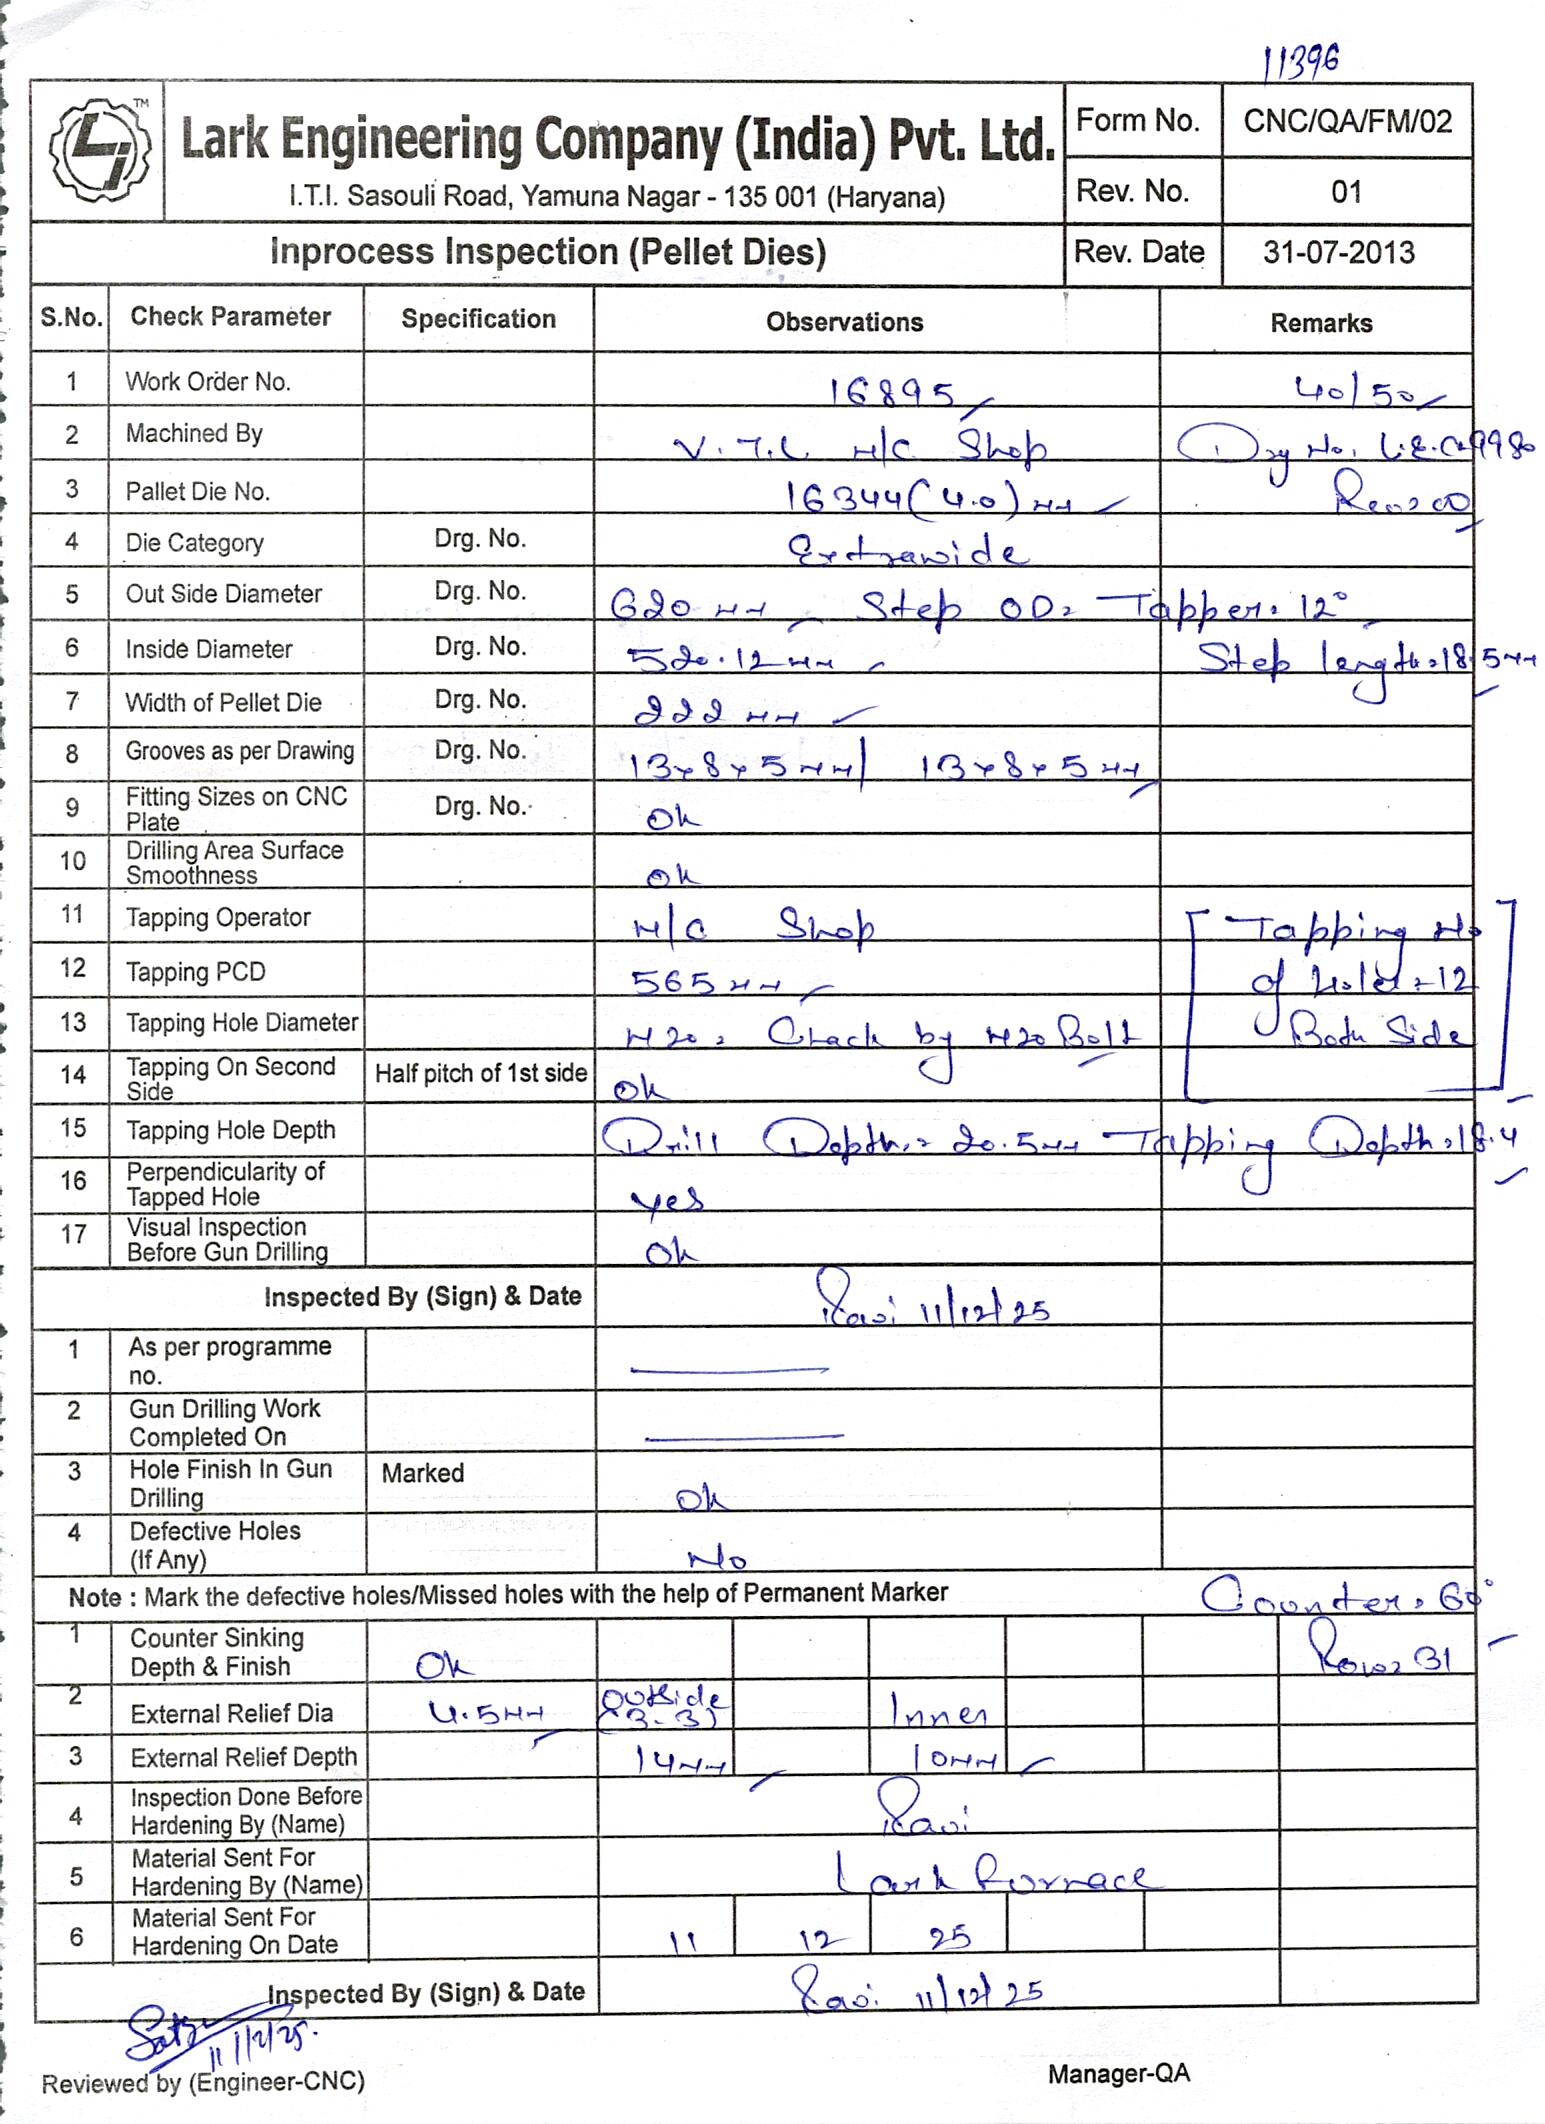 11396
TM
Lark Engineering Company (India) Pvt. Ltd.
I.T.I. Sasouli Road, Yamuna Nagar - 135 001 (Haryana)
Form No. CNC/QA/FM/02
Rev. No. 01
Inprocess Inspection (Pellet Dies) Rev. Date 31-07-2013
S.No. Check Parameter Specification Observations Remarks
1 Work Order No. 16895 40/50
2 Machined By V.T.L M/C Shop Drg No. L.E.C-9980
3 Pallet Die No. 16344 (4.0) mm Rev=00
4 Die Category Drg. No. Extrawide
5 Out Side Diameter Drg. No. 620 mm Step OD= Tapper= 12°
6 Inside Diameter Drg. No. 520.12 mm Step length=18.5mm
7 Width of Pellet Die Drg. No. 222 mm
8 Grooves as per Drawing Drg. No. 13x8x5mm/ 13x8x5mm
9 Fitting Sizes on CNC Plate Drg. No. Ok
10 Drilling Area Surface Smoothness Ok
11 Tapping Operator M/C Shop Tapping No
12 Tapping PCD 565mm of Holes=12
13 Tapping Hole Diameter M20= Chack by M20 Bolt Both Side
14 Tapping On Second Side Half pitch of 1st side Ok
15 Tapping Hole Depth Drill Depth= 20.5mm Tapping Depth=18.4
16 Perpendicularity of Tapped Hole yes
17 Visual Inspection Before Gun Drilling Ok
Inspected By (Sign) & Date Ravi 11/12/25
1 As per programme no.
2 Gun Drilling Work Completed On
3 Hole Finish In Gun Drilling Marked Ok
4 Defective Holes (If Any) No
Note : Mark the defective holes/Missed holes with the help of Permanent Marker Counter= 60°
1 Counter Sinking Depth & Finish Ok Row=31
2 External Relief Dia 4.5mm Outside (3-3) Inner
3 External Relief Depth 14mm 10mm
4 Inspection Done Before Hardening By (Name) Ravi
5 Material Sent For Hardening By (Name) Lark Furnace
6 Material Sent For Hardening On Date 11 12 25
Inspected By (Sign) & Date Ravi 11/12/25
11/12/25.
Reviewed by (Engineer-CNC) Manager-QA